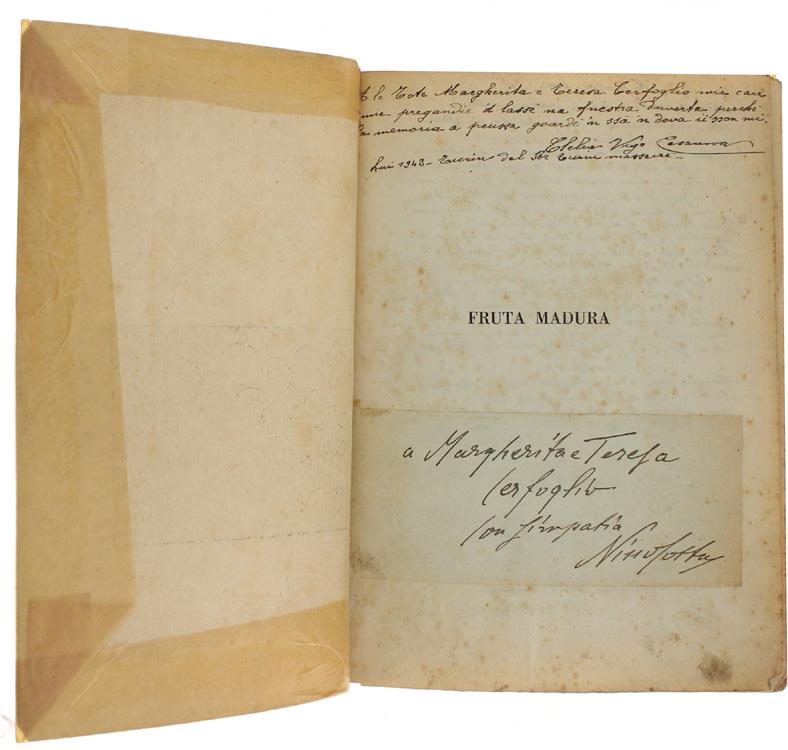 A le Tote Margherita e Teresa Cerfoglio mie care
pregandie 'd lassè na fnestra duverta perchè
la memoria a peussa goardè 'n ssà 'n dova ii sson mi.
Clelia Vugo Casanova
Lui 1943 - Turin del Turin massacrè -
FRUTA MADURA
a Margherita e Teresa
Cerfoglio
con simpatia
Nino Costa